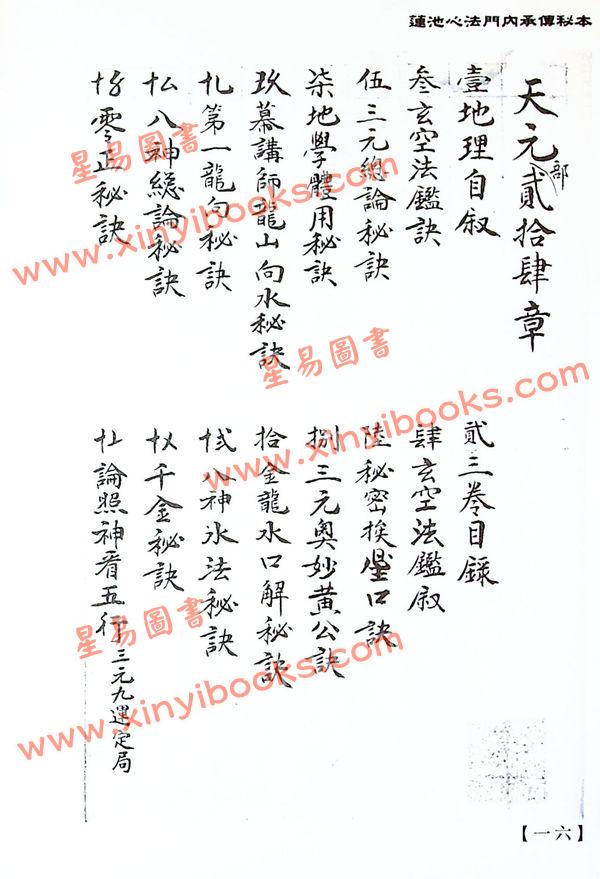 蓮池心法門內承傳秘本
天元部貳拾肆章
壹地理自叙
貳三卷目錄
叄玄空法鑑訣
肆玄空法鑑叙
伍三元總論秘訣
陸秘密挨星口訣
柒地學體用秘訣
捌三元奧妙黃公訣
玖幕講師龍山向水秘訣
拾金龍水口解秘訣
第一龍向秘訣
八神水法秘訣
八神總論秘訣
千金秘訣
零正秘訣
論照神看五行三元九運定局
【一六】
星易圖書
www.xinyibooks.com
星易圖書
www.xinyibooks.com
星易圖書
www.xinyibooks.com
星易圖書
www.xinyibooks.com